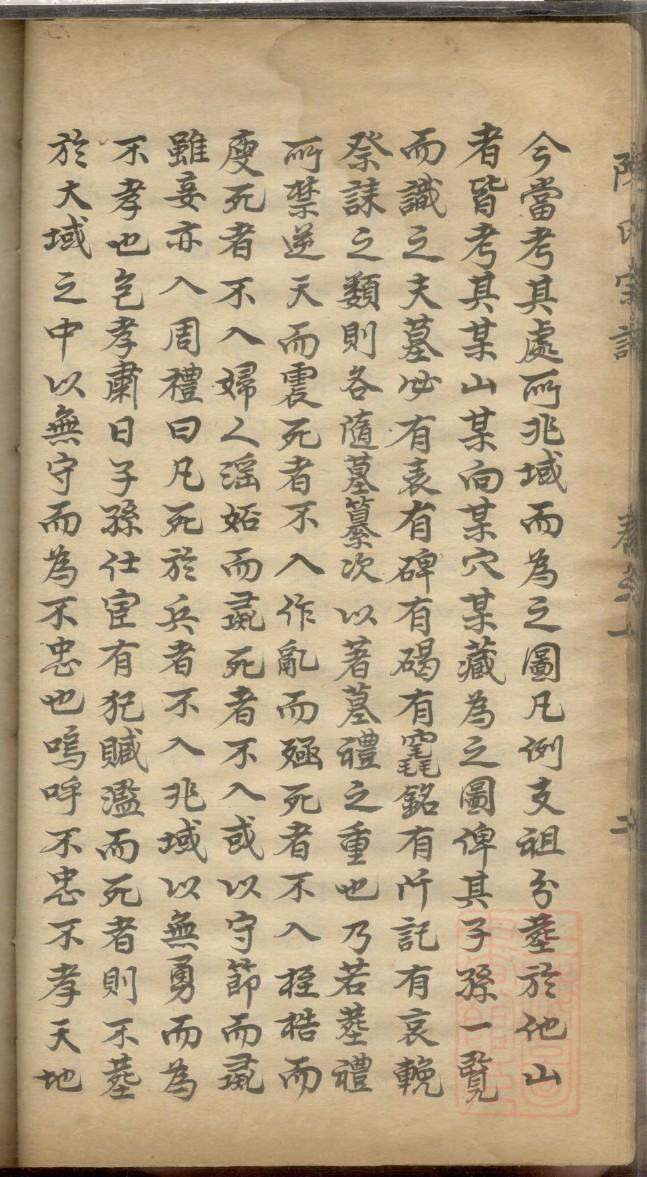 今當考其處所兆域而為之圖凡例支祖分塟於他山
者皆考其某山某向某穴某藏為之圖俾其子孫一覽
而識之夫墓必有表有碑有碣有銘有所記有哀輓
祭誄之類則各隨墓纂次以著墓禮之重也乃若塟禮
所禁逆天而震死者不入作亂而殛死者不入桎梏而
廋死者不入婦人滛妬而死者不入或以守節而
雖妾亦入周禮曰凡死於兵者不入兆域以無勇而為
不孝也包孝肅曰子孫仕宦有犯贓濫而死者則不塟
於大域之中以無守而為不忠也嗚呼不忠不孝天地